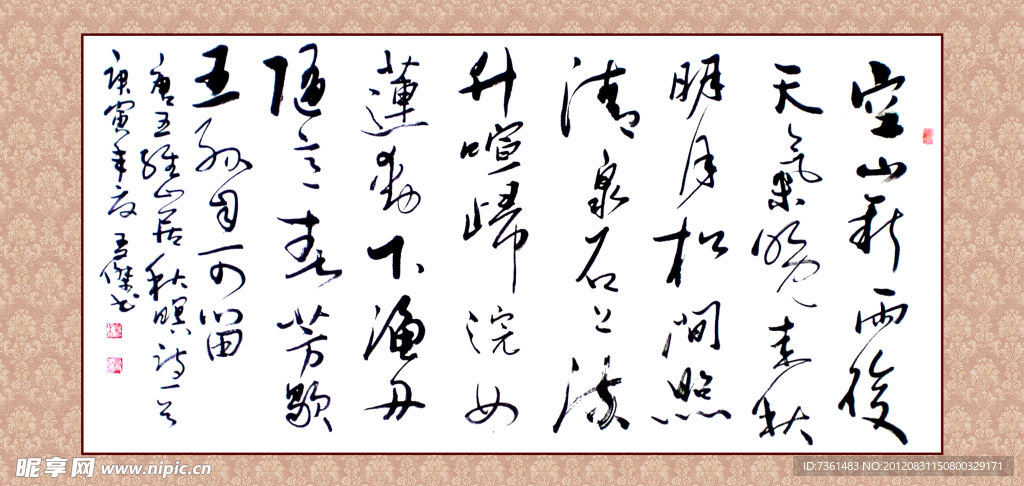 空山新雨後
天氣晚來秋
明月松間照
清泉石上流
竹喧歸浣女
蓮動下漁舟
隨意春芳歇
王孫自可留
唐王維山居秋暝詩一首
庚寅年夏 王傑書
昵享网 www.nipic.cn
ID:7361483 NO:20120831150800329171